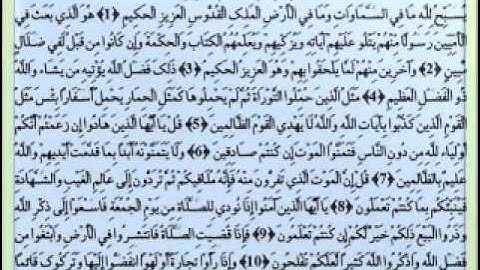 يُسَبِّحُ لِلَّهِ مَا فِي السَّمَاوَاتِ وَمَا فِي الْأَرْضِ الْمَلِكِ الْقُدُّوسِ الْعَزِيزِ الْحَكِيمِ ﴿1﴾ هُوَ الَّذِي بَعَثَ فِي
الْأُمِّيِّينَ رَسُولًا مِنْهُمْ يَتْلُو عَلَيْهِمْ آيَاتِهِ وَيُزَكِّيهِمْ وَيُعَلِّمُهُمُ الْكِتَابَ وَالْحِكْمَةَ وَإِن كَانُوا مِن قَبْلُ لَفِي ضَلَالٍ
مُبِينٍ ﴿2﴾ وَآخَرِينَ مِنْهُمْ لَمَّا يَلْحَقُوا بِهِمْ وَهُوَ الْعَزِيزُ الْحَكِيمُ ﴿3﴾ ذَلِكَ فَضْلُ اللَّهِ يُؤْتِيهِ مَن يَشَاءُ وَاللَّهُ
ذُو الْفَضْلِ الْعَظِيمِ ﴿4﴾ مَثَلُ الَّذِينَ حُمِّلُوا التَّوْرَاةَ ثُمَّ لَمْ يَحْمِلُوهَا كَمَثَلِ الْحِمَارِ يَحْمِلُ أَسْفَارًا بِئْسَ مَثَلُ
الْقَوْمِ الَّذِينَ كَذَّبُوا بِآيَاتِ اللَّهِ وَاللَّهُ لَا يَهْدِي الْقَوْمَ الظَّالِمِينَ ﴿5﴾ قُلْ يَا أَيُّهَا الَّذِينَ هَادُوا إِن زَعَمْتُمْ أَنَّكُمْ
أَوْلِيَاءُ لِلَّهِ مِن دُونِ النَّاسِ فَتَمَنَّوُا الْمَوْتَ إِن كُنتُمْ صَادِقِينَ ﴿6﴾ وَلَا يَتَمَنَّوْنَهُ أَبَدًا بِمَا قَدَّمَتْ أَيْدِيهِمْ وَاللَّهُ
عَلِيمٌ بِالظَّالِمِينَ ﴿7﴾ قُلْ إِنَّ الْمَوْتَ الَّذِي تَفِرُّونَ مِنْهُ فَإِنَّهُ مُلَاقِيكُمْ ثُمَّ تُرَدُّونَ إِلَى عَالِمِ الْغَيْبِ وَالشَّهَادَةِ
فَيُنَبِّئُكُم بِمَا كُنتُمْ تَعْمَلُونَ ﴿8﴾ يَا أَيُّهَا الَّذِينَ آمَنُوا إِذَا نُودِيَ لِلصَّلَاةِ مِن يَوْمِ الْجُمُعَةِ فَاسْعَوْا إِلَى ذِكْرِ اللَّهِ
وَذَرُوا الْبَيْعَ ذَلِكُمْ خَيْرٌ لَّكُمْ إِن كُنتُمْ تَعْلَمُونَ ﴿9﴾ فَإِذَا قُضِيَتِ الصَّلَاةُ فَانتَشِرُوا فِي الْأَرْضِ وَابْتَغُوا مِن
فَضْلِ اللَّهِ وَاذْكُرُوا اللَّهَ كَثِيرًا لَّعَلَّكُمْ تُفْلِحُونَ ﴿10﴾ وَإِذَا رَأَوْا تِجَارَةً أَوْ لَهْوًا انفَضُّوا إِلَيْهَا وَتَرَكُوكَ قَائِمًا